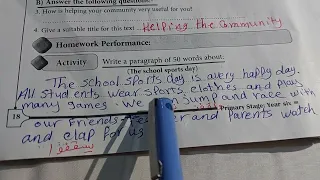 B) Answer the following questions:
3. How is helping your community very useful for you?
4. Give a suitable title for this text Helping the Community
Homework Performance:
Activity Write a paragraph of 50 words about:
(The school sports day)
The school sports day is a very happy day.
All students wear sports clothes and play
many games. We jump and race with
18 Primary Stage Year six
our friends and Parents watch
and clap for us